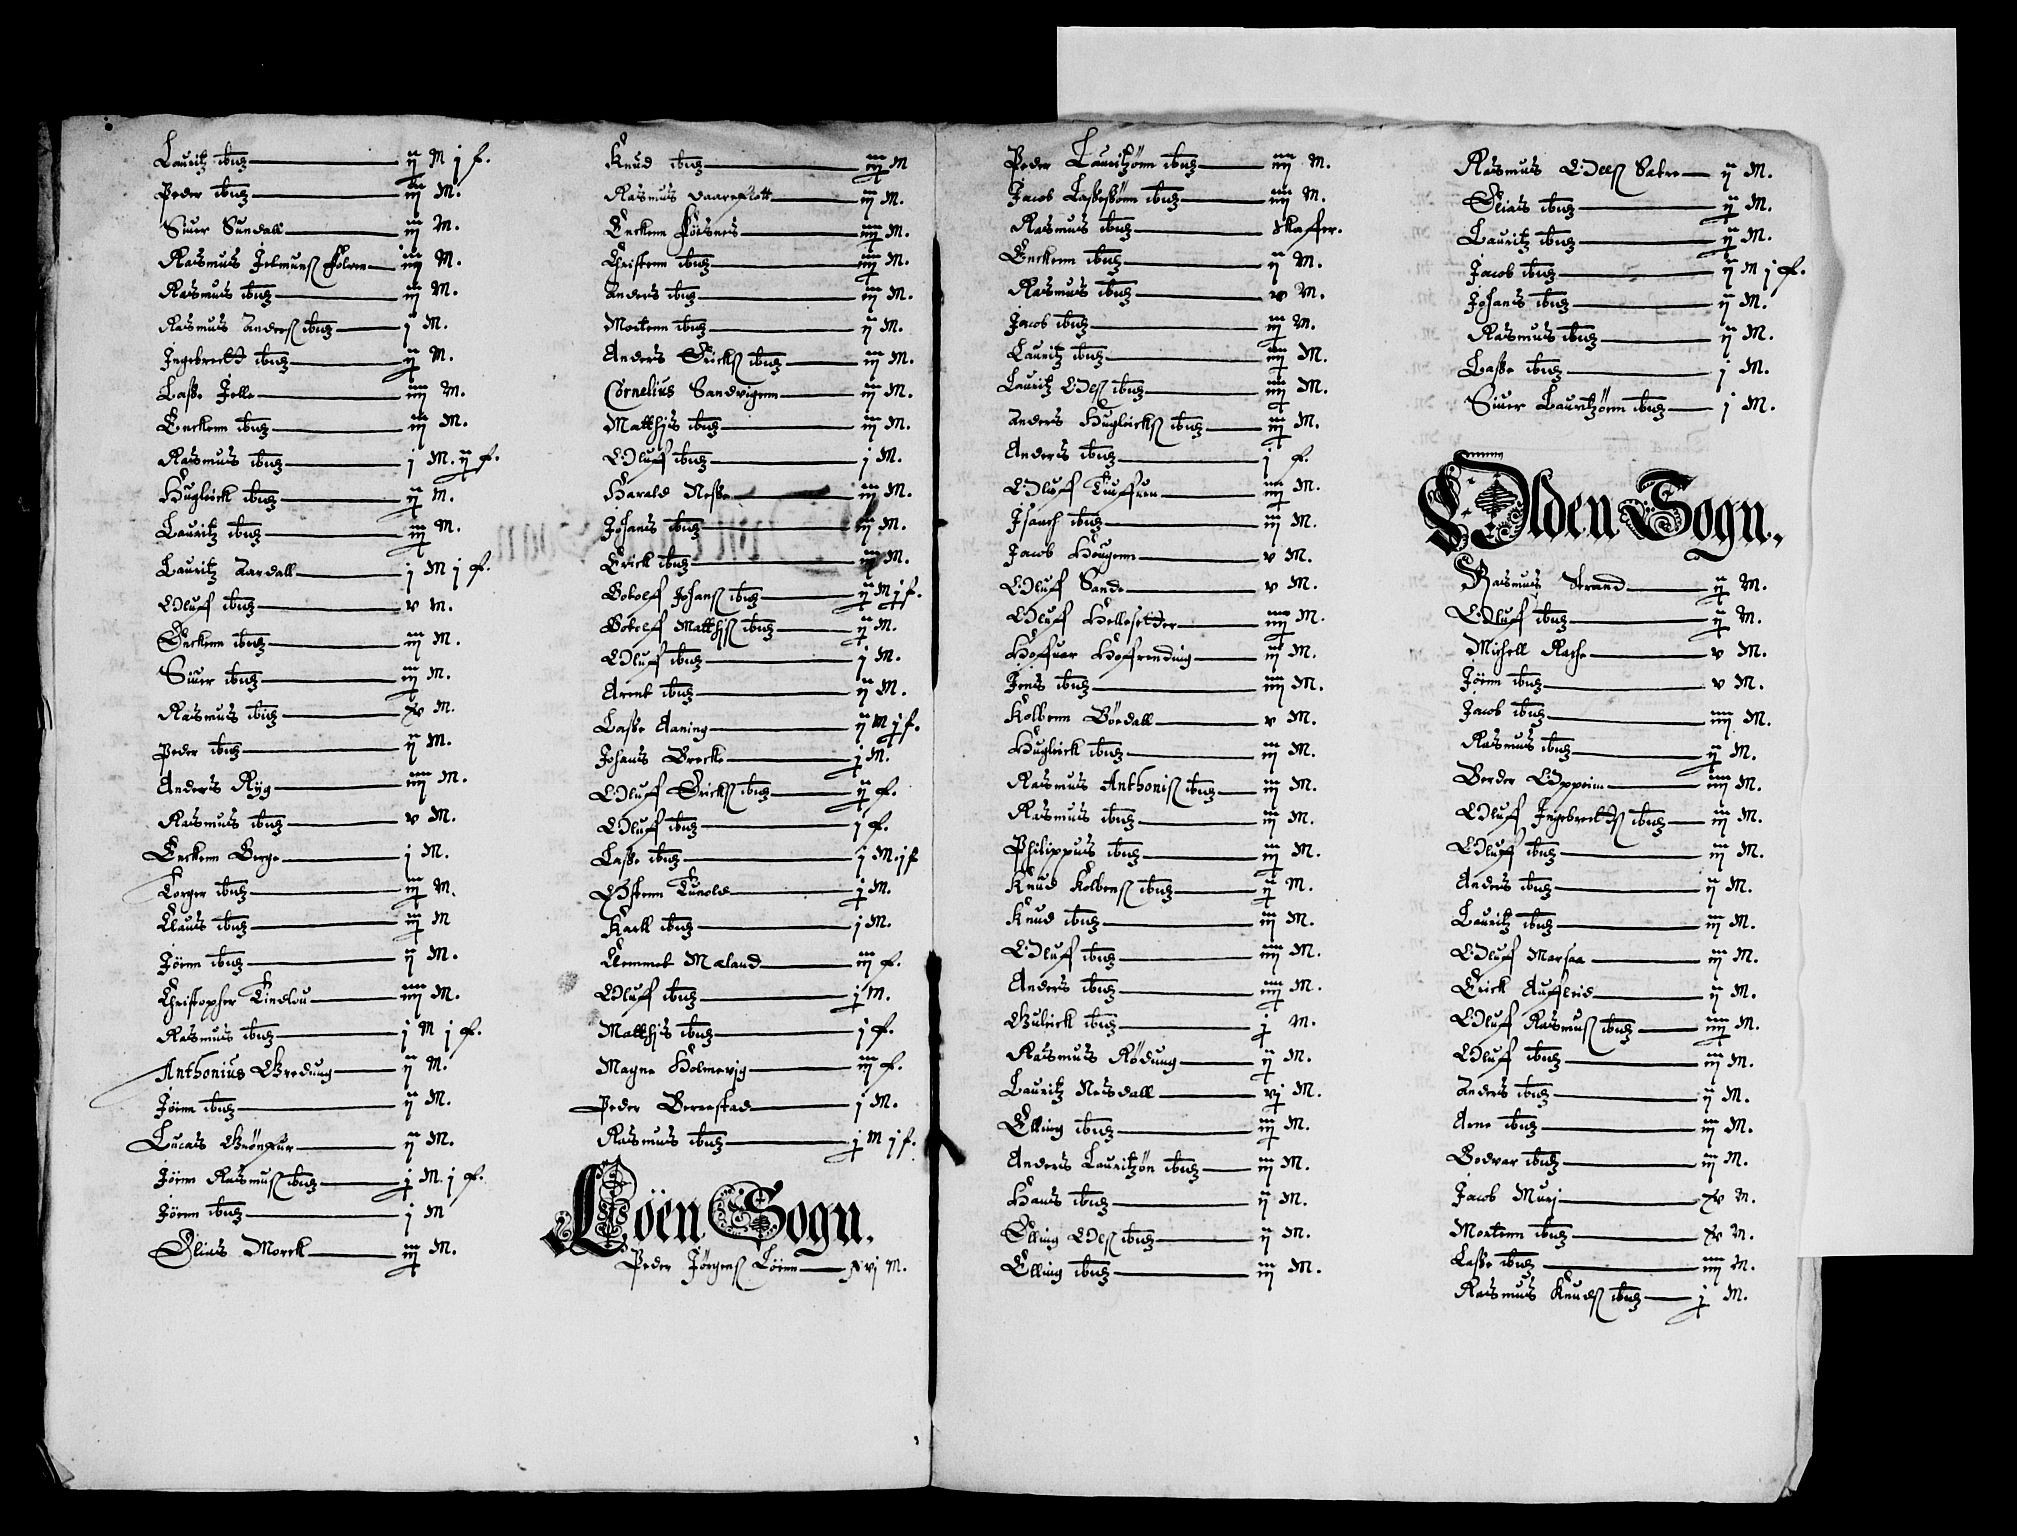 Lauritz ibid — ij M j f.
Peder ibid — iij M.
Siuer Sundall — iij M.
Rasmus Jelmunß Folven — iiij M.
Rasmus ibid — iij M.
Rasmus Anderß ibid — j M.
Ingebrectt ibid — ij M.
Laße Jelle — iiij M.
Enckenn ibid — iij M.
Rasmus ibid — j M. ij f.
Hugleick ibid — ij M.
Lauritz ibid — iij M.
Lauritz Aardall — j M j f.
Oluff ibid — v M.
Enckenn ibid — iij M.
Siuer ibid — iij M.
Rasmus ibid — xv M.
Peder ibid — ij M.
Anders Ryg — iiij M.
Rasmus ibid — v M.
Enckenn Berge — j M.
Torger ibid — iij M.
Claus ibid — iij M
Jöenn ibid — ij M.
Christopher Tindlou — iiij M.
Rasmus ibid — j M j f.
Anthonius Gredung — ij M.
Jöenn ibid — ij M.
Lucas Grönfur — ij M.
Jöenn Rasmuß ibid — j M. j f.
Jöenn ibid — j M
Elias Morck — iij M.
Knud ibid — iiij M
Rasmus Vaareflott — iij M.
Enckenn Föisnes — iiij M.
Christenn ibid — iiij M.
Anders ibid — iij M.
Mortenn ibid — ij M.
Anders Erickß ibid — iij M.
Cornelius Sandvigenn — iij M.
Matthis ibid — iij M.
Oluff ibid — j M.
Harald Neße — iij M.
Johans ibid — ij M.
Erick ibid — iij M.
Botolff Johanß ibid — ij M j f.
Botolff Matthiß ibid — ij M.
Oluff ibid — j M.
Arent ibid — ij M.
Laße Aaning — ij M j f.
Johans Brecke — j M.
Oluff Erickß ibid — ij f.
Oluff ibid — j f.
Laße ibid — j M. j f
Östenn Tunold — j M.
Karll ibid — j M.
Clemmet Mæland — iij f.
Oluff ibid — j M.
Matthis ibid — j f.
Magne Holmevig — iij f.
Peder Berrestad — j M.
Rasmus ibid — j M j f.
Löen Sogn.
Peder Jörgenß Löenn — xvj M.
Peder Lauritzönn ibid — iiij M.
Jacob Laßesönn ibid — iiij M.
Rasmus ibid — skaffer.
Enckenn ibid — ij M.
Rasmus ibid — v M.
Jacob ibid — iij M.
Lauritz ibid — iiij M.
Lauritz Oleß ibid — iiij M.
Anders Hugleickß ibid — iij M.
Anders ibid — j f.
Oluff Tiuffren — iiij M.
Isaach ibid — iij M.
Jacob Hougenn — v M.
Oluff Sande — v M.
Oluff Hellesetter — iiij M.
Hoffuar Hoffrending — iij M.
Jens ibid — iiij M.
Kolbenn Bödall — v M.
Hugleick ibid — iij M.
Rasmus Anthoniß ibid — iij M.
Rasmus ibid — iij M.
Philippus ibid — iij M.
Knud Kolbenß ibid — ij M.
Knud ibid — iij M.
Oluff ibid — iiij M.
Anders ibid — iiij M.
Guleick ibid — j M.
Rasmus Rödung — ij M.
Lauritz Nesdall — vj M.
Elling ibid — iij M.
Anders Lauritzön ibid — iij M.
Hans ibid — ij M.
Elling Oleß ibid — ij M.
Elling ibid — iij M.
Rasmus Oleß Sætre — ij M.
Elias ibid — ij M.
Lauritz ibid — ij M.
Jacob ibid — ij M j f.
Johans ibid — ij M.
Rasmus ibid — ij M.
Laße ibid — j M.
Siuer Lauritzönn ibid — j M.
Olden Sogn.
Rasmus Strand — ij M.
Oluff ibid — ij M.
Michell Rache — v M.
Jöenn ibid — v M.
Jacob ibid — iiij M.
Rasmus ibid — ij M.
Berder Oppeim — iiij M.
Oluff Ingebrecttß ibid — iij M.
Oluff ibid — iij M.
Anders ibid — ij M.
Lauritz ibid — iij M.
Oluff Marsaa — iij M.
Erick Auffleid — ij M.
Oluff Rasmuß ibid — iiij M.
Oluff ibid — iij M.
Anders ibid — ij M.
Arne ibid — iij M.
Bodvar ibid — iij M.
Jacob Muri — xv M.
Mortenn ibid — xv M.
Laße ibid — iiij M.
Rasmus Knudß ibid — j M.